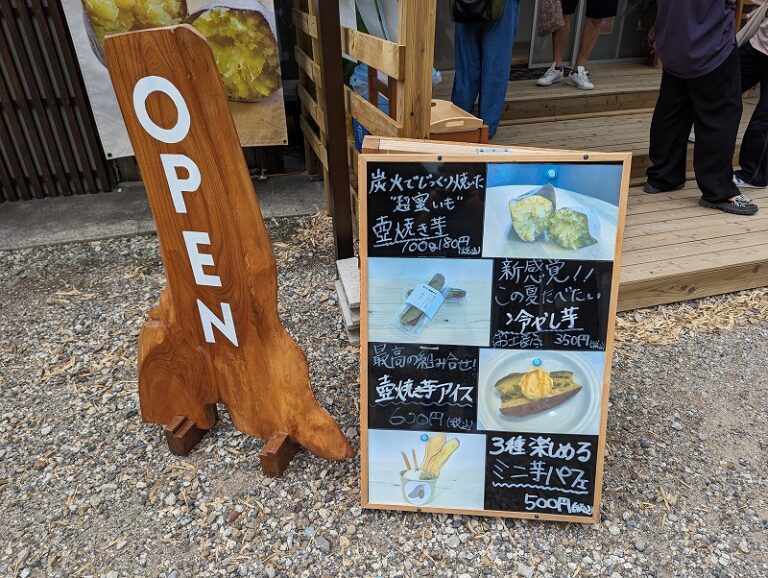 OPEN
炭火でじっくり焼いた
"超蜜いも"
壺焼き芋
100g180円(税込)
新感覚!!
この夏たべたい
冷やし芋
350円(税込)
最高の組み合せ!
壺焼き芋アイス
600円(税込)
3種楽しめる
ミニ芋パフェ
500円(税込)